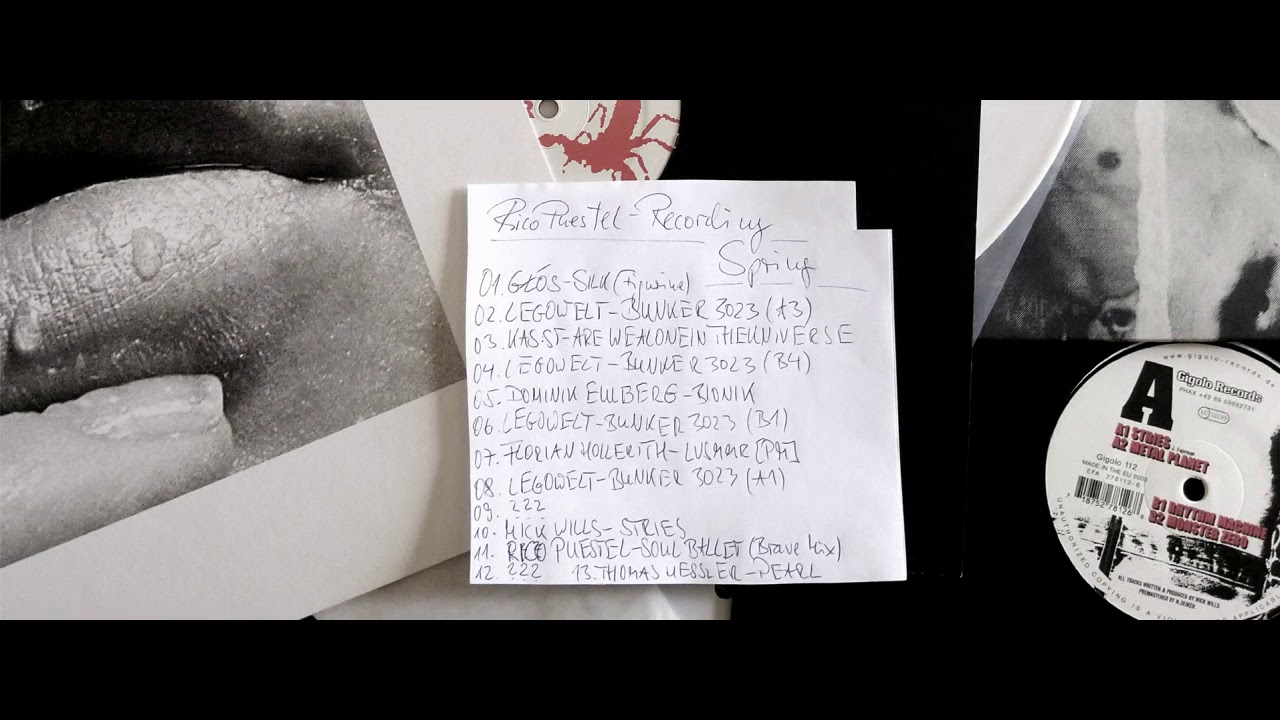 Rico Puestel - Recording
Spring
01. GŁÓS - SILK (Figurine)
02. LEGOWELT - BUNKER 3023 (A3)
03. KASST - ARE WE ALONE IN THE UNIVERSE
04. LEGOWELT - BUNKER 3023 (B4)
05. DOMINIK EULBERG - BIONIK
06. LEGOWELT - BUNKER 3023 (B1)
07. FLORIAN HOLLERITH -
08. LEGOWELT - BUNKER 3023 (A1)
09. ???
10. MICK WILLS - STRIES
11. RICO PUESTEL - SOUL BALLET (Brave Mix)
12. ??? 13. THOMAS HESSLER - PEARL
www.gigolo-records.de
A
Gigolo Records
PHAX +49 89 59992731
A1 STRIES
A2 METAL PLANET
Gigolo 112
MADE IN THE EU 2003
EFA 278112-6
B1 RHYTHM MACHINE
B2 MONSTER ZERO
ALL TRACKS WRITTEN & PRODUCED BY MICK WILLS
UNAUTHORIZED COPYING IS A